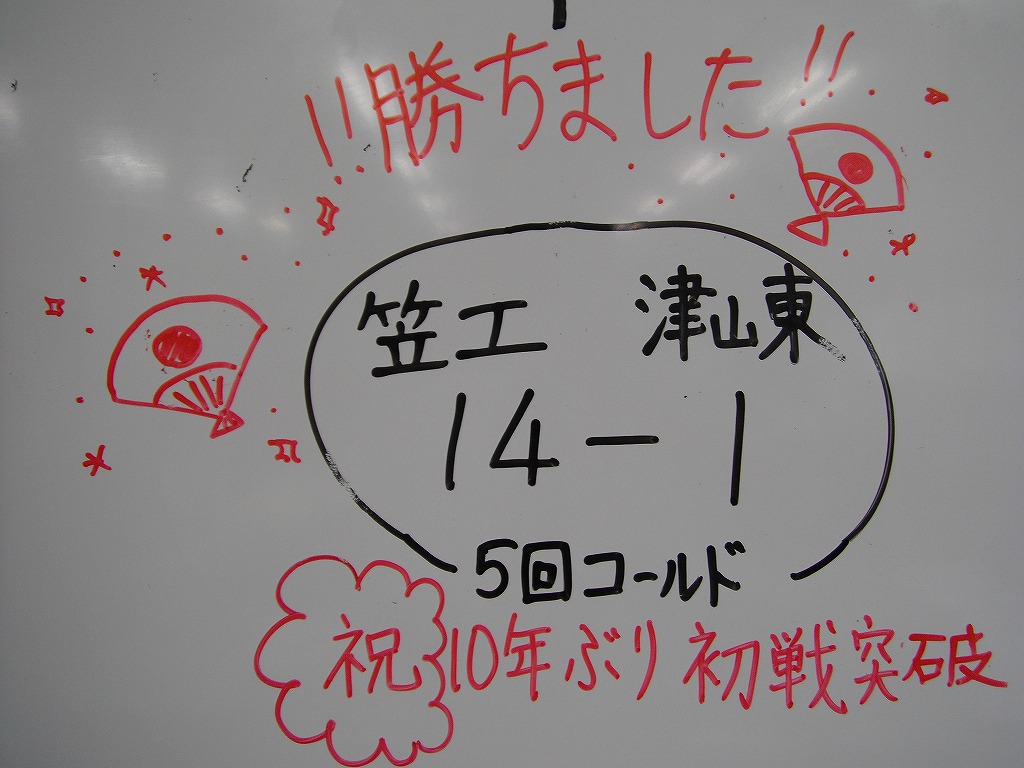 !!勝ちました!!
笠工 津山東
14-1
5回コールド
祝 10年ぶり初戦突破